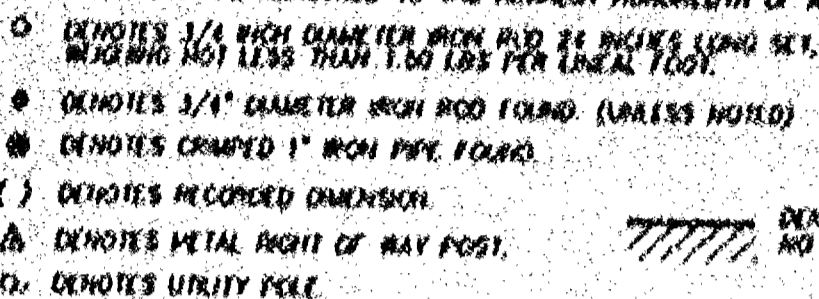 O DENOTES 3/4 INCH DIAMETER IRON ROD 24 INCHES LONG SET,
WEIGHING NOT LESS THAN 1.50 LBS PER LINEAL FOOT.
DENOTES 3/4" DIAMETER IRON ROD FOUND. (UNLESS NOTED)
DENOTES CRIMPED 1" IRON PIPE FOUND
( ) DENOTES RECORDED DIMENSION
DENOTES METAL RIGHT OF WAY POST.
NO
DENOTES UTILITY POLE